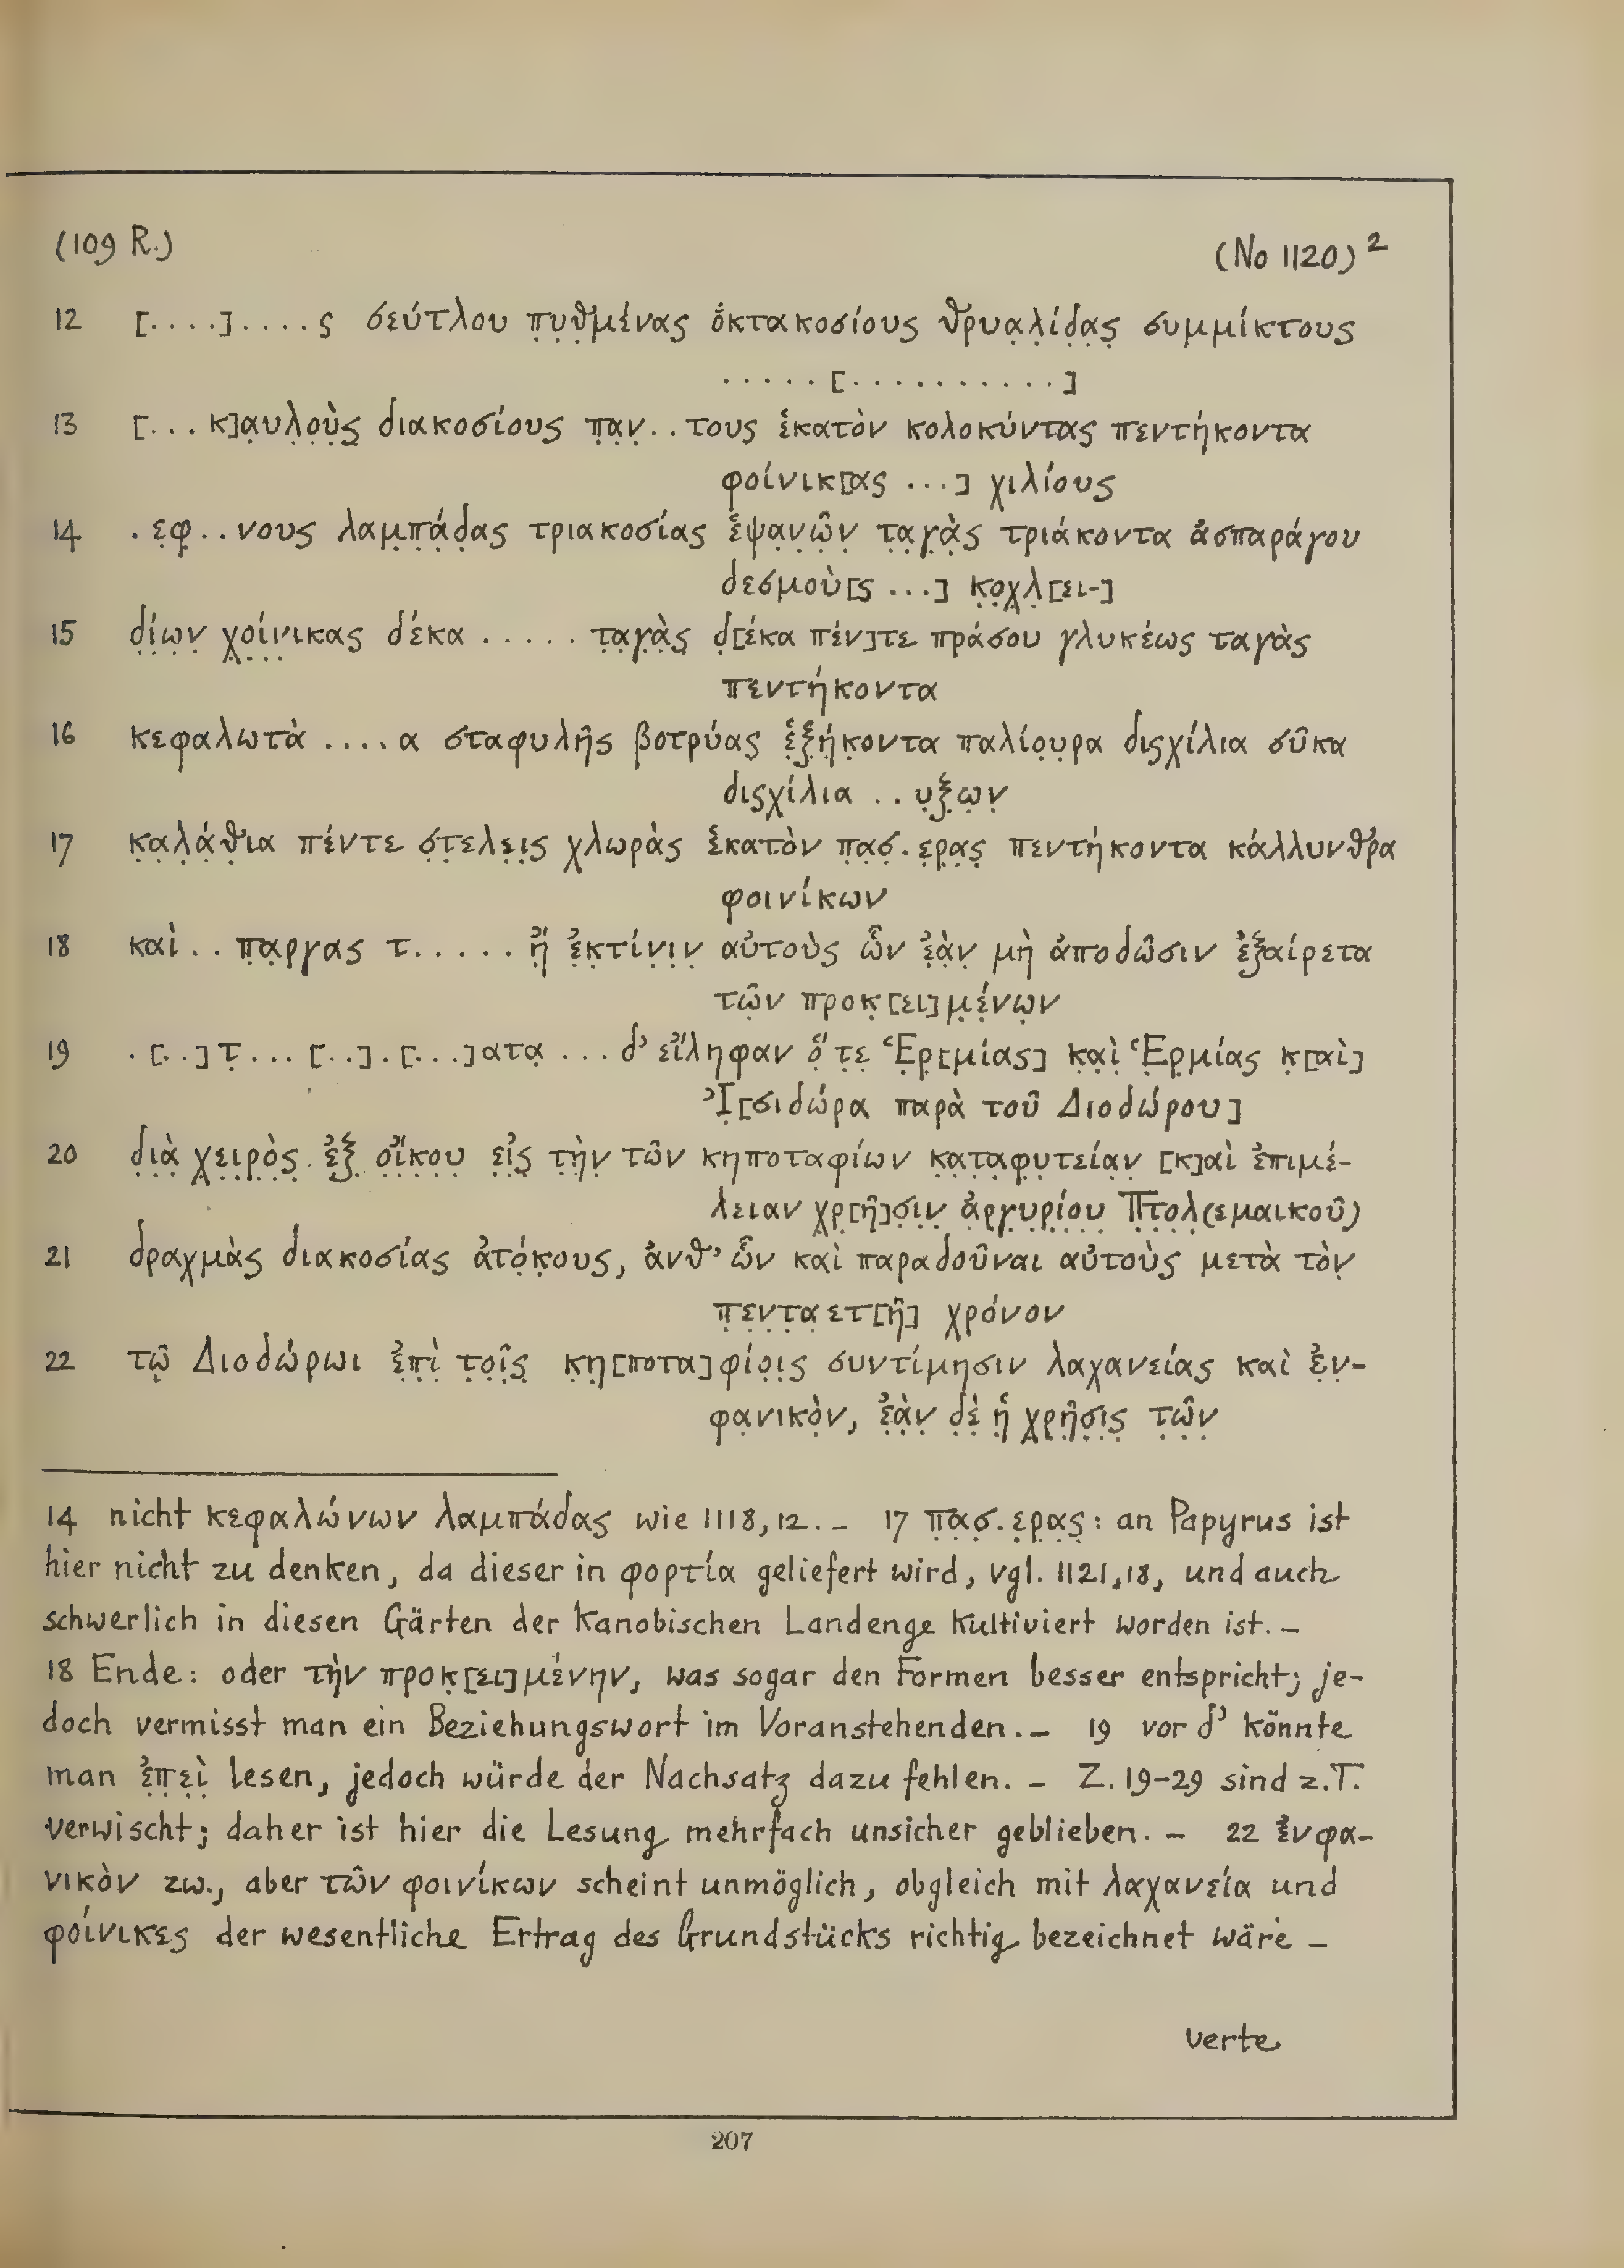 (109 R.)
(No 1120)²
12 [....]....ς σεύτλου π̣υ̣θ̣μένας ὀκτακοσίους θρυα̣λ̣ί̣δ̣α̣ς̣ συμμίκτους
.....[..........]
13 [... κ]α̣υ̣λ̣ο̣ὺ̣ς̣ διακοσίους π̣α̣ν̣..τους ἑκατὸν κολοκύντας πεντήκοντα
φοίνικ[ας ...] χιλίους
14 .ε̣φ̣..νους λαμ̣π̣ά̣δ̣ας τριακοσίας ἑψα̣ν̣ῶ̣ν̣ τ̣α̣γ̣ὰ̣ς τριάκοντα ἀσπαράγου
δεσμοὺ[ς ...] κ̣ο̣χ̣λ̣[ει-]
15 δ̣ί̣ω̣ν̣ χ̣ο̣ί̣ν̣ικας δέκα ..... τ̣α̣γ̣ὰ̣ς̣ δ̣[έκα πέν]τε πράσου γλυκέως ταγὰς
πεντήκοντα
16 κεφαλωτὰ ....α σταφυλῆς βοτρύας ἑ̣ξ̣ή̣κ̣οντα παλίο̣υ̣ρα διςχίλια σῦκα
διςχίλια ..υ̣ξ̣ω̣ν̣
17 κ̣α̣λ̣ά̣θ̣ια πέντε σ̣τ̣ελε̣ι̣ς χλωρὰς ἑκατὸν π̣α̣σ̣.ε̣ρ̣α̣ς̣ πεντήκοντα κάλλυνθρα
φοινίκων
18 καὶ.. π̣α̣ργας τ..... ἢ̣ ἐ̣κ̣τίν̣ι̣ν̣ αὐτοὺς ὧν ἐ̣ὰ̣ν̣ μὴ ἀποδῶσιν ἐξαίρετα
τῶ̣ν προκ̣[ει]μ̣έ̣νω̣ν
19 .[..]τ̣...[..].[...]ατα̣...δ’ εἴληφαν ὅ̣ τ̣ε̣ Ἑρ̣[μίας] κ̣α̣ὶ̣ Ἑρ̣μίας κ̣[αὶ]
Ἰ̣[σιδώρα παρὰ τοῦ Διοδώρου]
20 δ̣ι̣ὰ̣ χ̣ε̣ι̣ρ̣ὸ̣ς̣ ἐ̣ξ̣ ο̣ἴ̣κ̣ο̣υ̣ ε̣ἰ̣ς̣ τ̣ὴ̣ν̣ τῶν κηποταφίων κ̣α̣τ̣α̣φ̣υ̣τεία̣ν̣ [κ]αὶ ἐπιμέ-
λειαν χρ̣[ῆ]σ̣ι̣ν̣ ἀ̣ρ̣γ̣υ̣ρ̣ί̣ο̣υ̣ Π̣τ̣ο̣λ̣(εμαικοῦ)
21 δραχμὰς διακοσίας ἀτό̣κ̣ους, ἀνθ’ ὧν καὶ παραδοῦναι αὐτοὺς μετὰ τὸν̣
π̣ε̣ν̣τ̣α̣ετ[ῆ] χρόνον
22 τῷ Διοδώρωι ἐ̣π̣ὶ̣ τ̣ο̣ῖ̣ς̣ κ̣η̣[ποτα]φίο̣ι̣ς συντίμησιν λαχανείας καὶ ἐ̣ν̣-
φα̣νικὸ̣ν, ἐ̣ὰ̣ν δ̣ὲ̣ ἡ̣ χ̣ρ̣ῆ̣σ̣ι̣ς̣ τ̣ῶ̣ν̣
14 nicht κεφαλώνων λαμπάδας wie 1118, 12. – 17 π̣α̣σ̣.ε̣ρ̣α̣ς̣: an Papyrus ist
hier nicht zu denken, da dieser in φορτία geliefert wird, vgl. 1121,18, und auch
schwerlich in diesen Gärten der Kanobischen Landenge kultiviert worden ist. –
18 Ende: oder τὴν προκ̣[ει]μένην, was sogar den Formen besser entspricht; je-
doch vermisst man ein Beziehungswort im Voranstehenden. – 19 vor δ’ könnte
man ἐ̣π̣ε̣ὶ̣ lesen, jedoch würde der Nachsatz dazu fehlen. – Z. 19-29 sind z.T.
verwischt; daher ist hier die Lesung mehrfach unsicher geblieben. – 22 ἐ̣νφα-
νικὸν zw., aber τῶν φοινίκων scheint unmöglich, obgleich mit λαχανεία und
φοίνικες der wesentliche Ertrag des Grundstücks richtig bezeichnet wäre –
verte
207